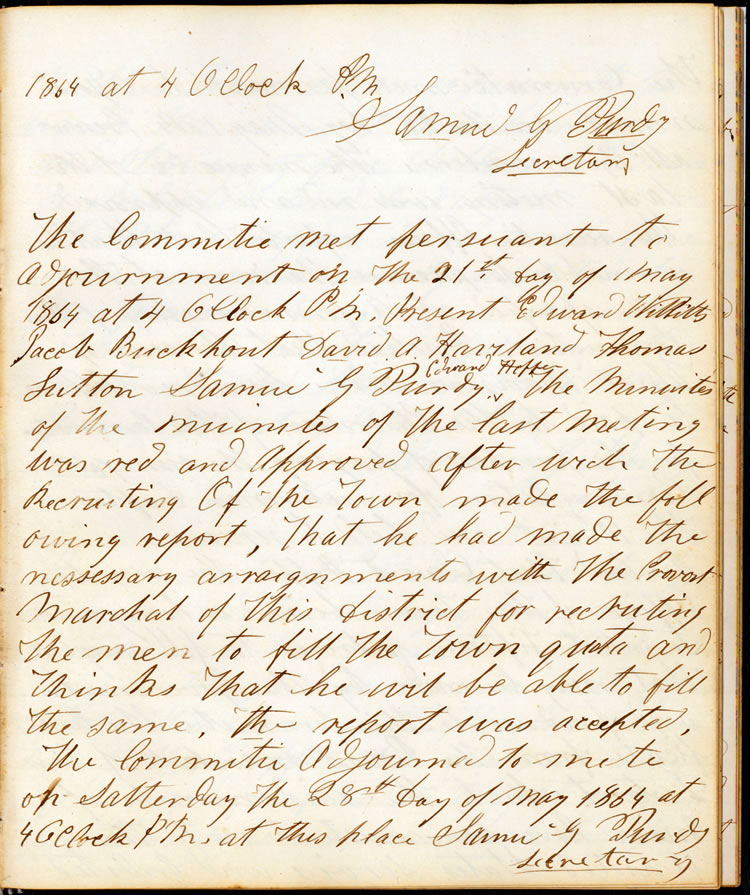 1864 at 4 O Clock P.M.
Samuel G Purdy
Secretary
The Committie met persuant to
Adjournment on the 21st day of May
1864 at 4 O Clock P M. Present Edward Willitts
Jacob Buckhout David A. Haviland Thomas
Edward
Sutton Samuel G Purdy. The Minuites
of the muinites of the last meting
was red and Approved after wich the
Recruiting Of the Town made the foll
owing report, That he had made the
nessessary arraignments with the Provost
Marchal of this district for recruting
the men to fill the Town quta and
thinks that he wil be able to fill
the same, the report was acepted.
The Committie Adjourned to mete
on Satterday the 28th day of May 1864 at
4 O Clock P M. at this place Samuel G Purdy
Secretary